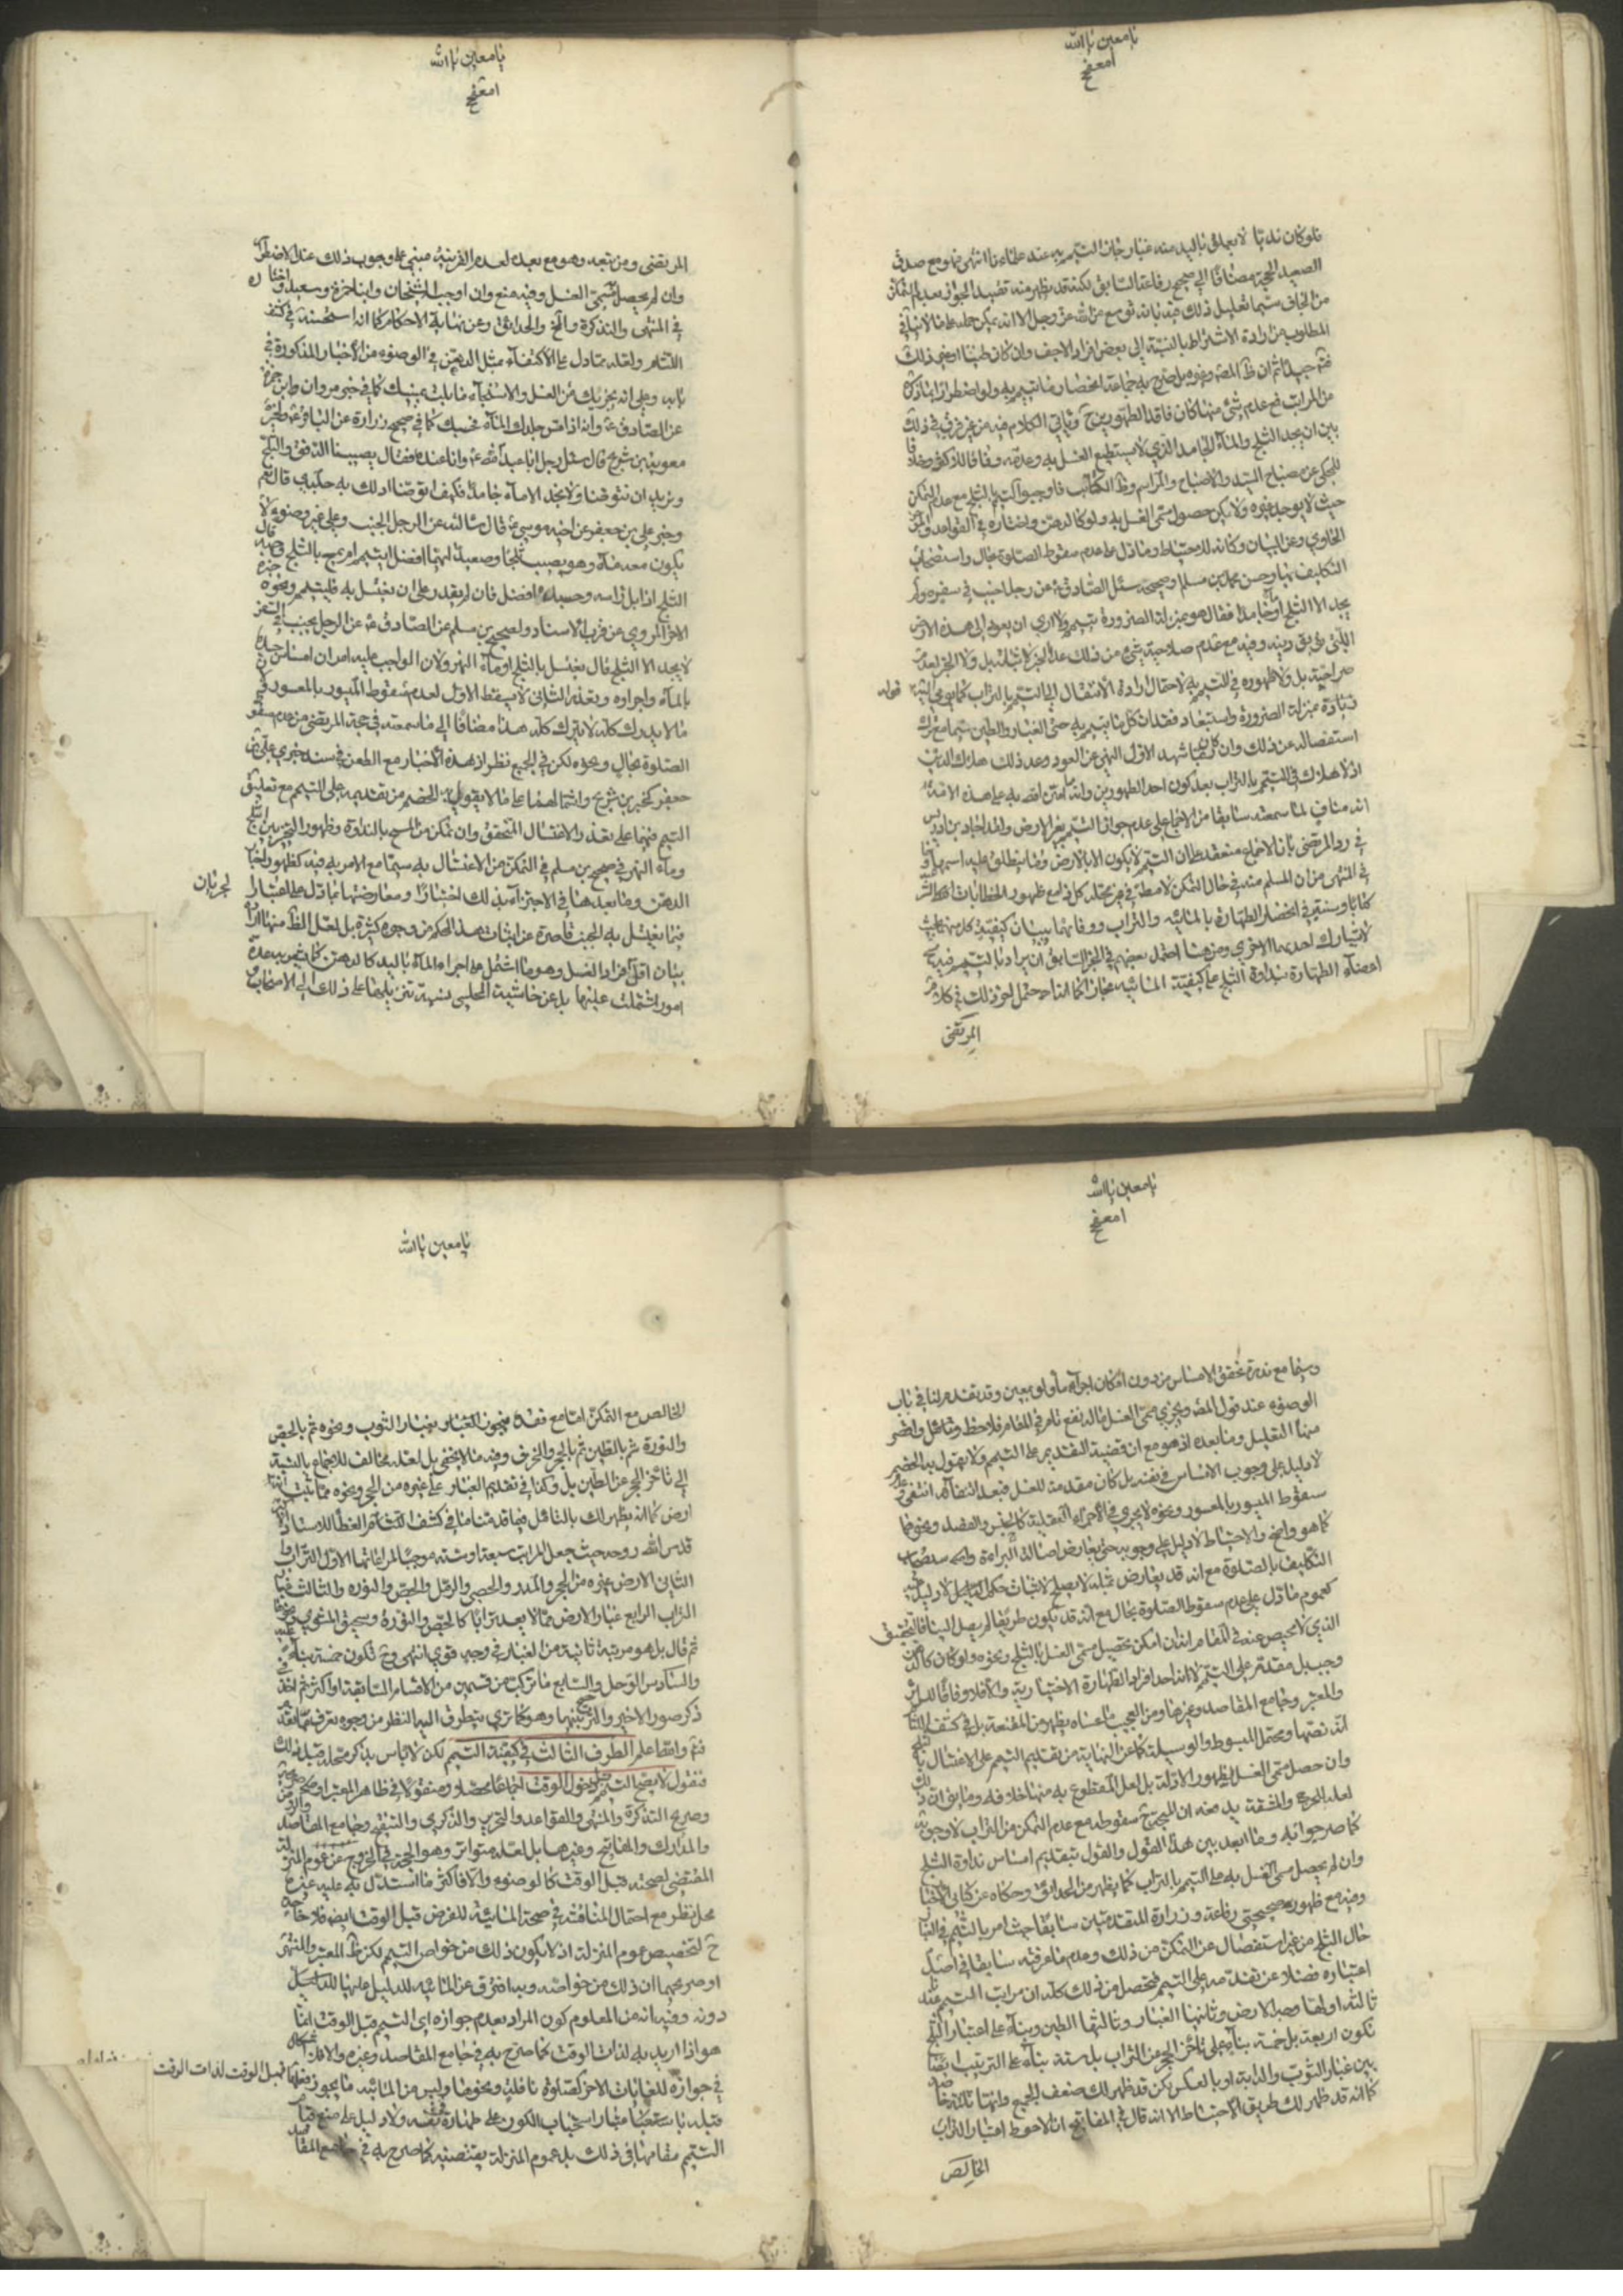 يا معين يا الله
فلو كان نديا لا يعلق باليد منه غبار جاز التيمم به عند علمائنا انتهى فهو مع صدق
الصعيد الحجة مضافا الى صحيح رفاعة السابق لكنه قد يظهر منه تقييد الجواز بعدم التمكن
من الجاف سيما تعليل ذلك فيه بانه توسع من الله عز وجل الا انه يمكن حمله على ما لا ينافي
المطلوب من ارادة الاشتراط بالنسبة الى بعض افراد الاجف وان كان طينا
من المراتب فمع عدم شيء منها كان فاقد الطهورين ح وياتي الكلام فيه من غير فرق في ذلك
بين ان يجد الثلج والماء الجامد الذي لا يستطيع الغسل به وعدمه وفاقا للاكثر وخلافا
للمحكي عن مصباح السيد والاصباح والمراسم وظ الكاتب فاوجبوا التيمم بالثلج مع عدم التمكن
حيث لا يوجد غيره ولا يمكن حصول مسمى الغسل به ولو كالدهن واختاره في القواعد
الحاوي وعن البيان وكانه للاحتياط وما دل على عدم سقوط الصلوة بحال واستصحاب
التكليف بها وحسن محمد بن مسلم وصحيحه سئل الصادق ع عن رجل اجنب في سفره ولم
يجد الا الثلج او ماء جامدا فقال هو بمنزلة الضرورة يتيمم ولا ارى ان يعود الى هذه الارض
التي توبق دينه وفيه مع عدم صلاحية شيء من ذلك عدا الخبر لاثباته بل ولا الخبر لعدم
صراحته بل ولا ظهوره في التيمم به لاحتمال ارادة الانتقال الى التيمم بالتراب كما يومي اليه قوله
بمنزلة الضرورة واستبعاد فقدان كل ما يتيمم به حتى الغبار والطين سيما مع ترك
استفصاله عن ذلك وان كان ربما شهد الاول النهي عن العود وعد ذلك هلاك الدين
اذ لا هلاك في التيمم بالتراب بعد كون احد الطهورين وانه مما امتن الله به على هذه الامة
انه مناف لما سمعته سابقا من الاجماع على عدم جواز التيمم بغير الارض
في رد المرتضى بان الاجماع منعقد بطان التيمم لا يكون الا بالارض وما ينطلق عليه اسمها
في المنتهى من ان المسلم منه في حال التمكن لا مطلقا
كتابا وسنة في انحصار الطهارة بالمائية والترابية ووفائهما ببيان كيفية كل منهما بحيث
لا تشارك احديهما الاخرى ومن هنا احتمل بعضهم في الخبر السابق ان يراد بالتيمم فيه
امضاء الطهارة بنداوة الثلج على كيفية المائية مجازا كما انا احتمل نحو ذلك في كلام
المرتضى
يا معين يا الله
المرتضى ومن تبعه وهو مع بعده لعدم القرينة مبني على وجوب ذلك عند الاضطرار
وان لم يحصل مسمى الغسل وفيه منع وان اوجبه الشيخان وابنا حمزة وسعيد واختاره
في المنتهى والتذكرة والحدائق وعن نهاية الاحكام كما انه استحسنه في كشف
اللثام ولعله لما دل على الاكتفاء بمثل الدهن في الوضوء من الاخبار المذكورة في
بابه وعلى انه يجزيك من الغسل والاستنجاء ما بلت يمينك كما في خبر هرون ابن حمزة
عن الصادق ع وانه اذا مس جلدك الماء فحسبك كما في صحيح زرارة عن الباقر ع ولخبر
معوية بن شريح قال سئل رجل ابا عبد الله ع وانا عنده فقال يصيبنا الدمق والثلج
ونريد ان نتوضا ولا نجد الا ماء جامدا فكيف اتوضا ادلك به جلدي قال نعم
وخبر علي بن جعفر عن اخيه موسى ع قال سالته عن الرجل الجنب وعلى غير وضوء لا
يكون معه ماء وهو يصيب ثلجا وصعيدا ايهما افضل ايتيمم ام يمسح بالثلج وجهه قال
الثلج اذا بل راسه وجسده افضل فان لم يقدر على ان يغتسل به فليتيمم ونحوه خبره
الاخر المروي عن قرب الاسناد ولصحيح بن مسلم عن الصادق ع عن الرجل يجنب في السفر
لا يجد الا الثلج قال يغتسل بالثلج او ماء النهر ولان الواجب عليه امران امساس جسده
بالماء واجراؤه وبتعذر الثاني لا يسقط الاول لعدم سقوط الميسور بالمعسور
ما لا يدرك كله لا يترك كله هذا مضافا الى ما سمعته في حجة المرتضى من عدم سقوط
الصلوة بحال ونحوه لكن في الجميع نظر اذ هذه الاخبار مع الطعن في سند خبري علي بن
جعفر كخبر بن شريح واشتمالهما على ما لا يقول به الخصم من تقديمه على التيمم مع تعليق
التيمم فيهما على تعذر الاغتسال المتحقق وان تمكن من المسح بالنداوة
وماء النهر في صحيح بن مسلم في التمكن من الاغتسال به سيما مع الامر به فيه كظهور اخبار
الدهن وما بعدها في الاجتزاء بذلك اختيارا ومعارضتها بما دل على اعتبار الجريان
فيما يغتسل به الجنب قاصرة عن اثبات هذا الحكم من وجوه كثيرة بل لعل الظ منها ارادة
بيان اقل افراد الغسل وهو ما اشتمل على اجراء الماء باليد كالدهن
امور اشتملت عليها بل عن حاشية المجلسي نسبة تنزيلها على ذلك الى الاصحاب
يا معين يا الله
وسيما مع ندرة تحقق الامساس من دون امكان اجراء ماء ولو بمعين وقد تقدم لنا في باب
الوضوء عند قول المص ويجزي مسمى الغسل ما له نفع تام في المقام فلاحظ وتامل واظهر
منها التعليل وما بعده اذ هو مع ان قضيته التقديم على التيمم ولا يقول به الخصم
لا دليل على وجوب الامساس في نفسه بل كان مقدمة للغسل فبعد انتفائه انتفى وعدم
سقوط الميسور بالمعسور ونحوه لا يجري في الاجزاء العقلية كالجنس والفصل ونحوهما
كما هو واضح والاحتياط لا دليل على وجوبه حتى يعارض اصالة البراءة واستصحاب
التكليف بالصلوة مع انه قد يعارض بمثله لا يصلح لاثبات حكم
كعموم ما دل على عدم سقوط الصلوة بحال مع انه قد يكون طريقا لم يصل الينا فالتحقيق
الذي لا محيص عنه في المقام انه ان امكن تحصيل مسمى الغسل بالثلج ونحوه ولو كان كالدهن
وجب بل مقدما على التيمم لانه احد افراد الطهارة الاختيارية والا فلا وفاقا للسرائر
والمعتبر وجامع المقاصد وغيرها ومن العجيب ما عساه يظهر من المقنعة بل في كشف اللثام
انه نصها ومحتمل المبسوط والوسيلة كما عن النهاية من تقديم التيمم على الاغتسال بالثلج
وان حصل مسمى الغسل لظهور الادلة بل لعل المقطوع به منها خلافه وما يق ان ذلك
لعله للحرج والمشقة يدفعه ان المتجه ح سقوطه مع عدم التمكن من التراب لا وجوبه
كما صرحوا به وما ابعد بين هذا القول والقول بتقديم امساس نداوة الثلج
وان لم يحصل مسمى الغسل به على التيمم بالتراب كما يظهر من الحدائق وحكاه عن كتابي الاخبار
وفيه مع ظهور صحيحتي رفاعة وزرارة المتقدمتين سابقا حيث امر بالتيمم في
حال الثلج من غير استفصال عن التمكن من ذلك وعدمه ما عرفته سابقا في اصل
اعتباره فضلا عن تقدمه على التيمم فتحصل من ذلك كله ان مراتب التيمم عندنا
ثالثة اولها وجه الارض وثانيها الغبار وثالثها الطين وبناء على اعتبار الثلج
تكون اربعة بل خمسة بناء على تاخر الحجر عن التراب بل ستة بناء على الترتيب ايضا
بين غبار الثوب والدابة او بالعكس لكن قد ظهر لك ضعف الجميع وانها ثلثة
كما انه قد ظهر لك طريق الاحتياط الا انه قال في المفاتيح ان الاحوط اعتبار التراب
الخالص
يا معين يا الله
الخالص مع التمكن اما مع فقده فيجوز الغبار بغبار الثوب ونحوه ثم بالجص
والنورة ثم بالطين ثم بالحجر والخزف وفيه ما لا يخفى بل لعله مخالف للاجماع بالنسبة
الى تاخر الحجر عن الطين بل وكذا في تقديم الغبار على غيره من الحجر ونحوه مما ثبت انه
ارض كما انه يظهر لك بالتامل فيما قدمنا ما في كشف الغطاء للاستاذ
قدس الله روحه حيث جعل المراتب سبعة او ستة موجبا لمراعاتها الاول التراب
الثاني الارض غيره من الحجر والمدر والحصى والرمل والجص والنورة والثالث غبار
التراب الرابع غبار الارض مما لا يعد ترابا كالجص والنورة وسحيق المشوي ونحوها
ثم قال بل هو مرتبة ثانية من الغبار في وجه قوي انتهى وح تكون خمسة
والسادس الوحل والسابع ما تركب من قسمين من الاقسام السابقة او اكثر ثم اخذ في
ذكر صور الاخير والترجيح بينها وهو كما ترى يتطرق اليه النظر من وجوه تعرف مما تقدم
الطرف الثالث في كيفية التيمم لكن لا باس بذكر مقدمة قبل ذلك
فنقول لا يصح التيمم قبل دخول الوقت اجماعا محصلا ومنقولا في ظاهر المعتبر
وصريح التذكرة والمنتهى والقواعد والتحرير والذكرى والتنقيح وجامع المقاصد
والمدارك والمفاتيح وغيرها بل لعله متواتر وهو الحجة في الخروج عن عموم المنزلة
المقتضي لصحته قبل الوقت كالوضوء والا فاكثر ما استدل به عليه غيره
محل نظر مع احتمال المناقشة في صحة المائية للفرض قبل الوقت ايضا فلا حاجة
ح لتخصيص عموم المنزلة اذ لا يكون ذلك من خواص التيمم لكن ظ المعتبر والمنتهى
او صريحهما ان ذلك من خواصه وبه افترق عن المائية للدليل عليها
دونه وفيه انه من المعلوم كون المراد بعدم جوازه اي التيمم قبل الوقت انما
هو اذا اريد به لذات الوقت كما صرح به في جامع المقاصد وغيره والا فلا اشكال
في جوازه للغايات الاخر كصلوة نافلة ونحوها وليس من المائية ما يجوز فعلها قبل الوقت لذات الوقت
قبله باستصحابها واستحباب الكون على طهارة في نفسه ولا دليل على منع قيام
التيمم مقامها في ذلك بل عموم المنزلة يقتضيه كما صرح به في جامع المقاصد